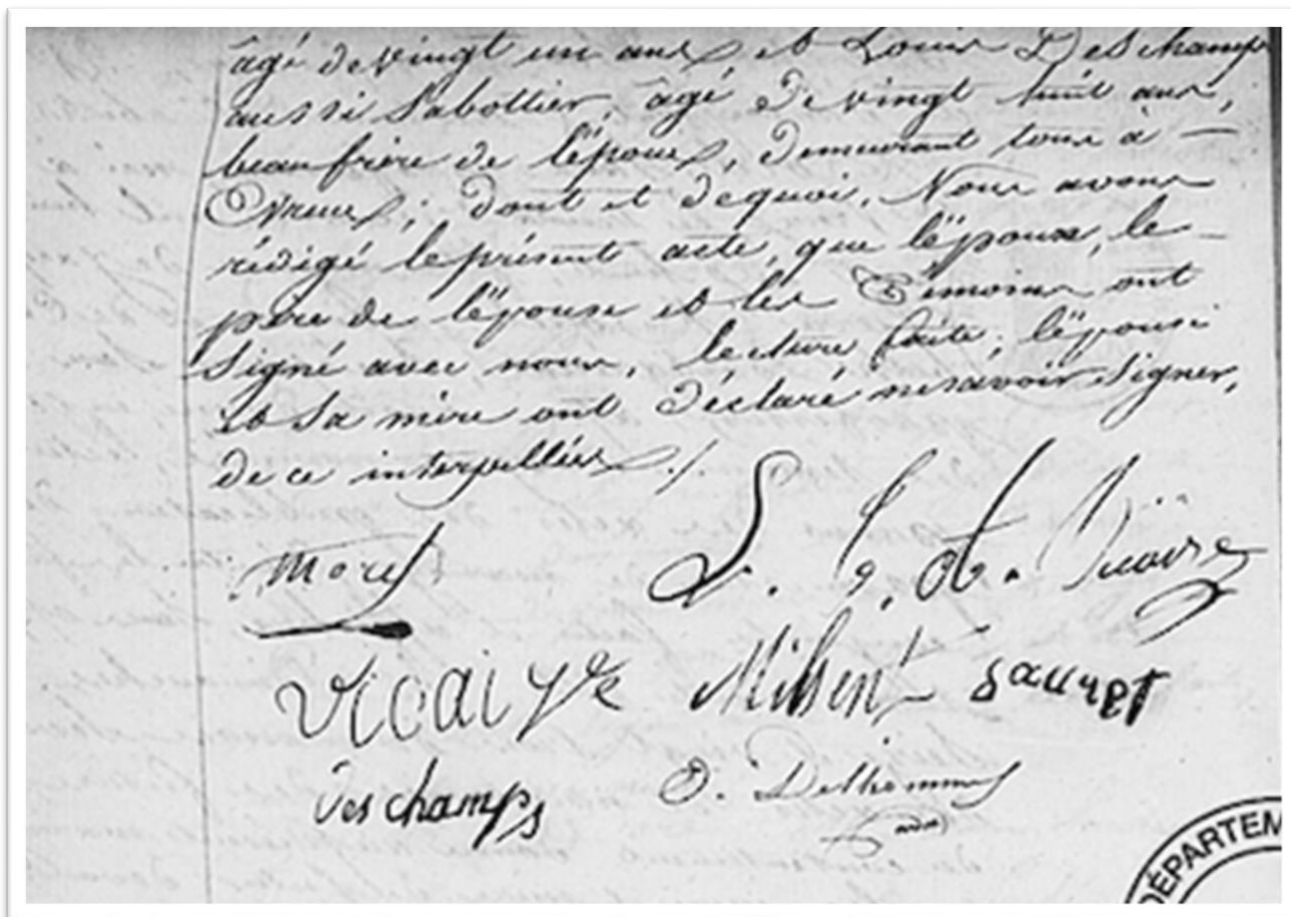 âgé de vingt un ans et Louis Deschamps
aussi Sabottier, âgé de vingt huit ans,
beau frère de l'époux, demeurant tous à —
Evreux; dont et dequoi, Nous avons
rédigé le présent acte, que l'époux, le —
père de l'épouse et les Témoins ont
Signé avec nous, lecture faite, l'épouse
et Sa mère ont déclaré ne savoir Signer,
de ce interpellées ./.
Morel
vicaiyre Milsent sauret
deschamps O. Delhommes
DÉPARTEM